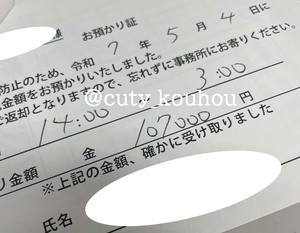 お預かり証
防止のため、令和 7 年 5 月 4 日に
金額をお預かりいたしました。
ご返却となりますので、忘れずに事務所にお寄りください。
14:00 3:00
@cuty_kouhou
り金額 金 107000 円
※上記の金額、確かに受け取りました
氏名